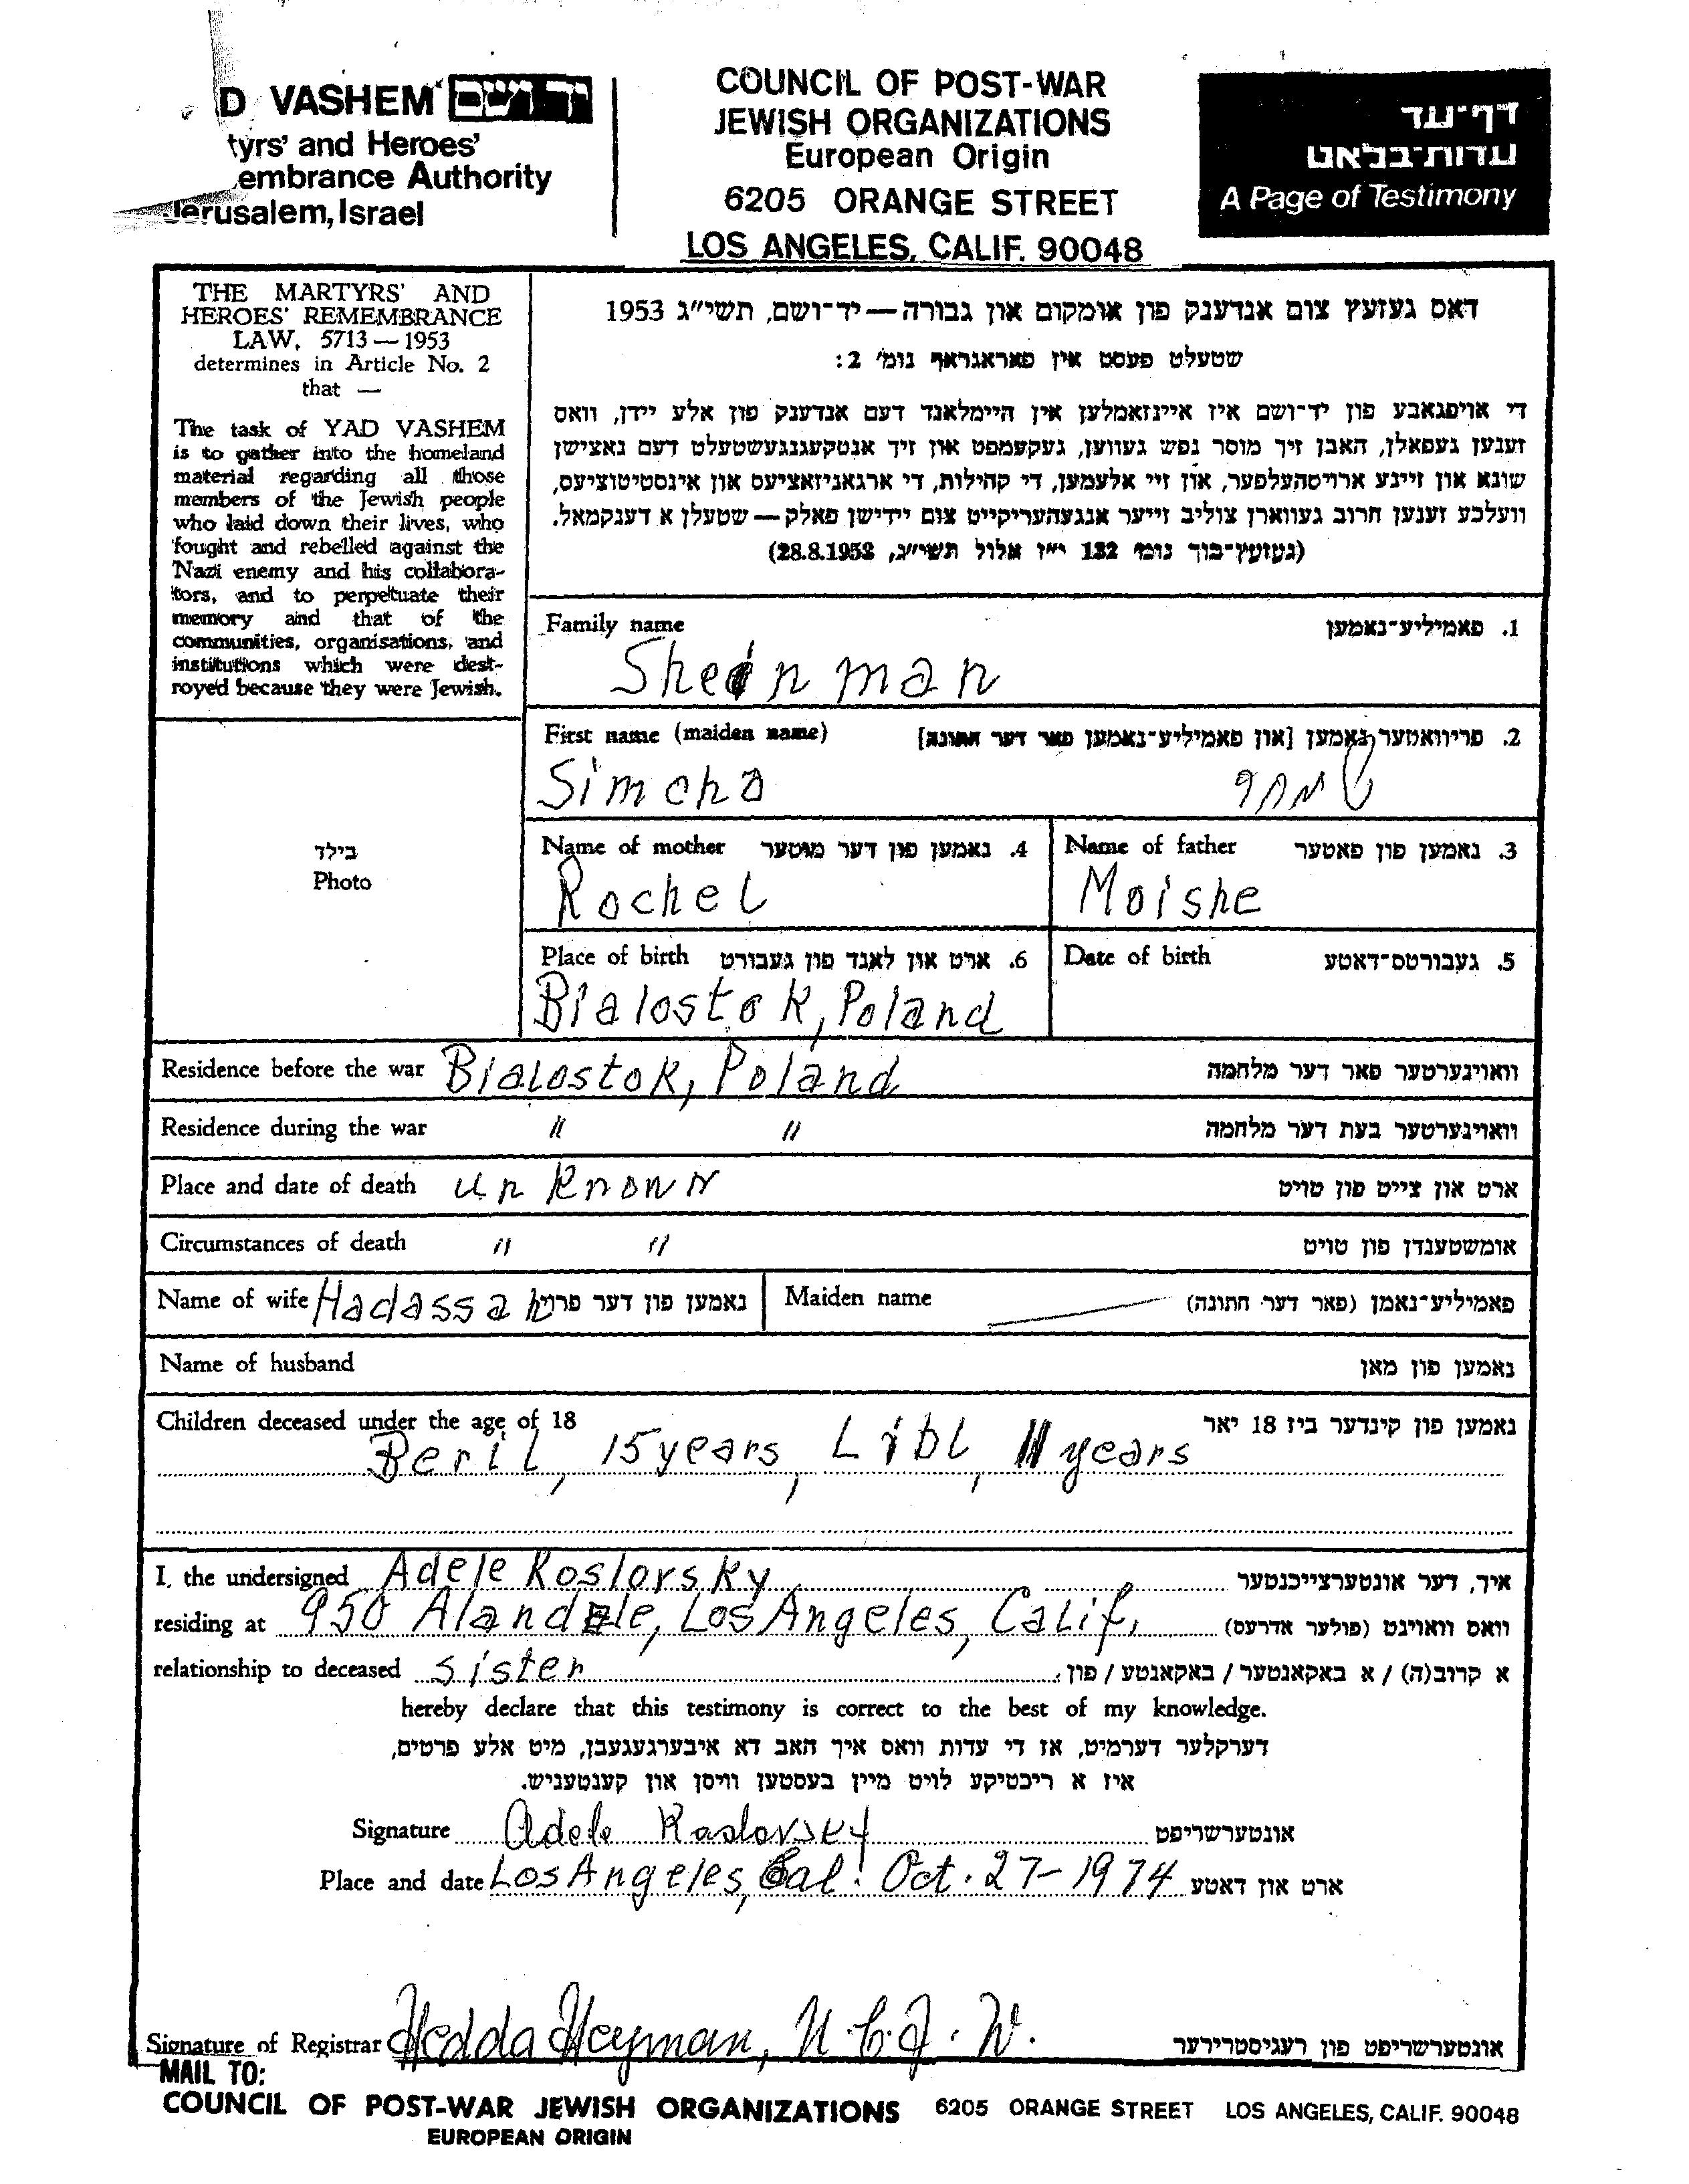 D VASHEM יד ושם
tyrs' and Heroes'
embrance Authority
Jerusalem, Israel
COUNCIL OF POST-WAR
JEWISH ORGANIZATIONS
European Origin
6205 ORANGE STREET
LOS ANGELES, CALIF. 90048
דף־עד
עדות־בלאט
A Page of Testimony
THE MARTYRS' AND
HEROES' REMEMBRANCE
LAW, 5713—1953
determines in Article No. 2
that —
The task of YAD VASHEM
is to gather into the homeland
material regarding all those
members of the Jewish people
who laid down their lives, who
fought and rebelled against the
Nazi enemy and his collabora-
tors, and to perpetuate their
memory and that of the
communities, organisations, and
institutions which were dest-
royed because they were Jewish.
דאס געזעץ צום אנדענק פון אומקום און גבורה—יד־ושם, תשי״ג 1953
שטעלט פעסט אין פאראגראף נומ׳ 2:
די אויפגאבע פון יד־ושם איז איינזאמלען אין היימלאנד דעם אנדענק פון אלע יידן, וואס
זענען געפאלן, האבן זיך מוסר נפש געווען, געקעמפט און זיך אנטקעגנגעשטעלט דעם נאצישן
שונא און זיינע ארויסהעלפער, און זיי אלעמען, די קהילות, די ארגאניזאציעס און אינסטיטוציעס,
וועלכע זענען חרוב געווארן צוליב זייער אנגעהעריקייט צום יידישן פאלק—שטעלן א דענקמאל.
(געזעץ־בוך נומ׳ 132 י״ז אלול תשי״ג, 28.8.1953)
Family name 1. פאמיליע־נאמען
Sheinman
First name (maiden name) 2. פריוואטער נאמען [און פאמיליע־נאמען פאר דער חתונה]
Simcha שמחה
Name of mother 4. נאמען פון דער מוטער Name of father 3. נאמען פון פאטער
Rochel Moishe
Place of birth 6. ארט און לאנד פון געבורט Date of birth 5. געבורטס־דאטע
Bialostok, Poland
בילד
Photo
Residence before the war Bialostok, Poland וואוינערטער פאר דער מלחמה
Residence during the war " " וואוינערטער בעת דער מלחמה
Place and date of death unknown ארט און צייט פון טויט
Circumstances of death " " אומשטענדן פון טויט
Name of wife Hadassah נאמען פון דער פרוי Maiden name פאמיליע־נאמן (פאר דער חתונה)
Name of husband נאמען פון מאן
Children deceased under the age of 18 נאמען פון קינדער ביז 18 יאר
Beril, 15 years, Libl, 11 years
I, the undersigned Adele Koslovsky איך, דער אונטערצייכנטער
residing at 950 Alandele, Los Angeles, Calif. וואס וואוינט (פולער אדרעס)
relationship to deceased sister א קרוב(ה) / א באקאנטער / באקאנטע / פון:
hereby declare that this testimony is correct to the best of my knowledge.
דערקלער דערמיט, אז די עדות וואס איך האב דא איבערגעגעבן, מיט אלע פרטים,
איז א ריכטיקע לויט מיין בעסטען וויסן און קענטעניש.
Signature Adele Kaslovsky אונטערשריפט
Place and date Los Angeles, Cal. Oct. 27-1974 ארט און דאטע
Signature of Registrar Hedda Heyman, N.C.J.W. אונטערשריפט פון רעגיסטרירער
MAIL TO:
COUNCIL OF POST-WAR JEWISH ORGANIZATIONS 6205 ORANGE STREET LOS ANGELES, CALIF. 90048
EUROPEAN ORIGIN